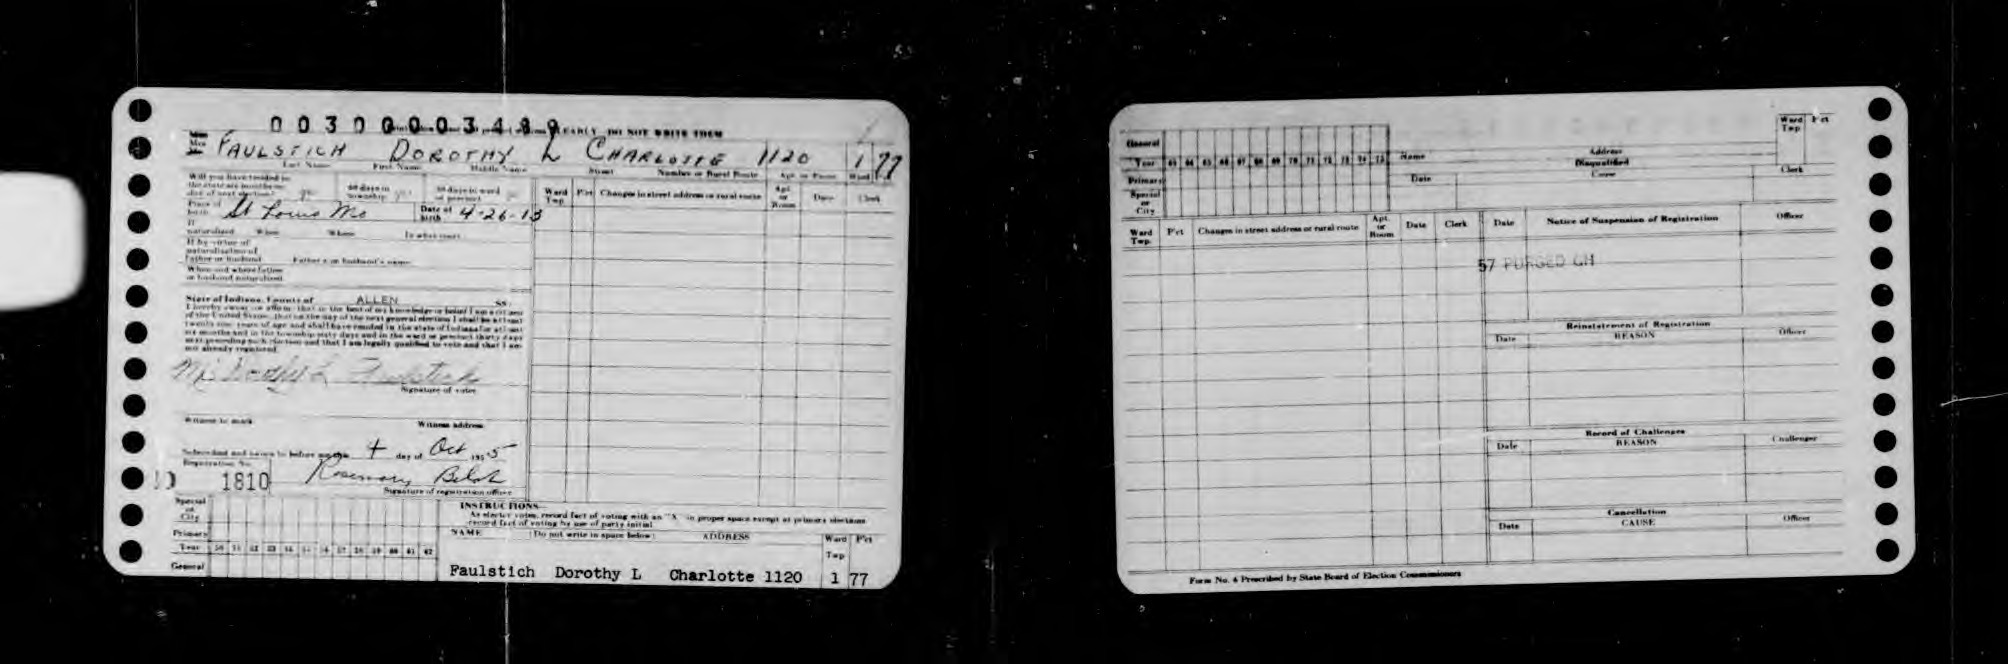 003000003489
CLEARLY DO NOT WRITE THEM
FAULSTICH DOROTHY L CHARLOTTE 1120 1 77
Last Name First Name Middle Name Street Number or Rural Route Apt. or Room Ward
Will you have resided in
the state six months
of next election? 60 days in township 30 days in ward or precinct
Ward Twp. P'ct Changes in street address or rural route Apt. or Room Date Clerk
Place of birth St Louis Mo Date of birth 4-26-13
If naturalized When Where In what court
If by virtue of
naturalization of
father or husband Father's or husband's name
When and where father
or husband naturalized
State of Indiana, County of ALLEN SS:
I hereby swear or affirm that to the best of my knowledge or belief I am a citizen
of the United States, that on the day of the next general election I shall be at least
twenty-one years of age and shall have resided in the state of Indiana for at least
six months and in the township sixty days and in the ward or precinct thirty days
next preceding such election and that I am legally qualified to vote and that I am
not already registered.
Mrs Dorothy L Faulstich
Signature of voter
Witness to mark Witness address
Subscribed and sworn to before me this day of Oct 1955
Registration No. Rosemary
1810
Signature of registration officer
Special
or
City
Primary
Year 50 51 52 53 54 55 56 57 58 59 60 61 62
General
INSTRUCTIONS—
As elector votes, record fact of voting with an "X" in proper space except at primary elections
record fact of voting by use of party initial
NAME (Do not write in space below) ADDRESS Ward Twp P'ct
Faulstich Dorothy L Charlotte 1120 1 77
General
Year 63 64 65 66 67 68 69 70 71 72 73 74 75
Primary
Special
or
City
Name Address Ward Twp P'ct
Disqualified
Date Cause Clerk
Ward Twp. P'ct Changes in street address or rural route Apt. or Room Date Clerk
Date Notice of Suspension of Registration Officer
57 PURGED GH
Reinstatement of Registration
Date REASON Officer
Record of Challenges
Date REASON Challenger
Cancellation
Date CAUSE Officer
Form No. 4 Prescribed by State Board of Election Commissioners